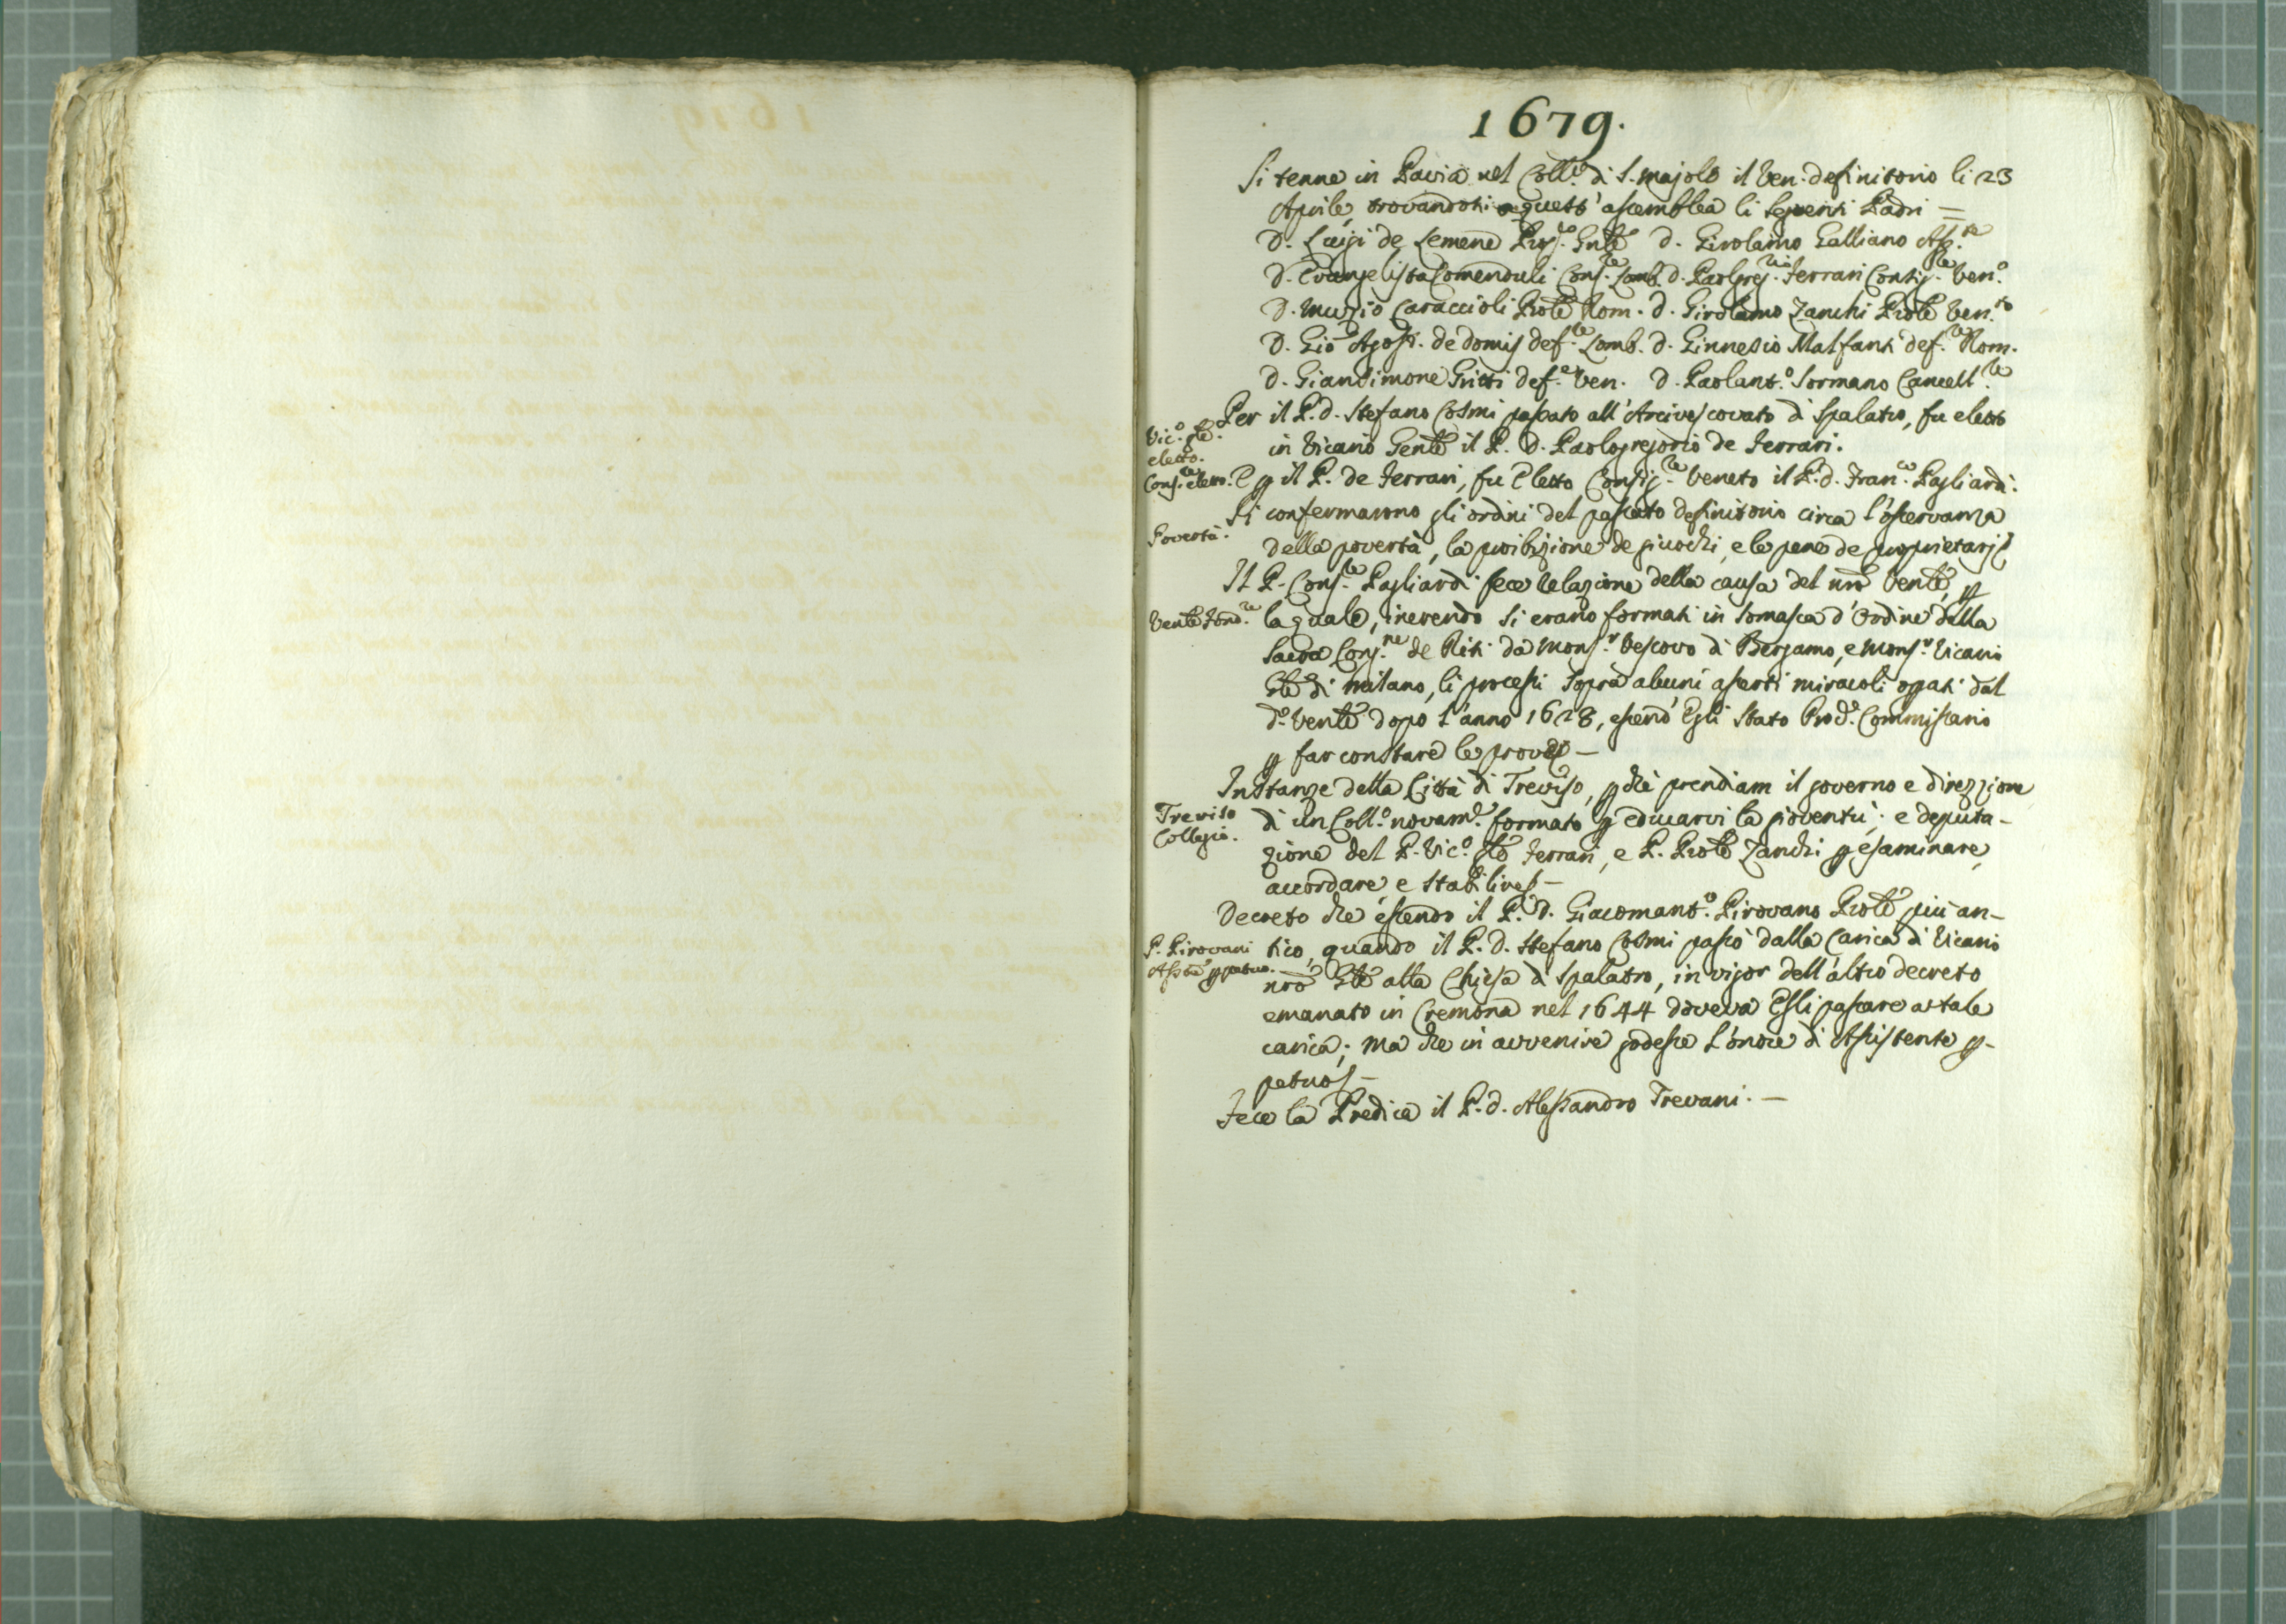 1679.
Si tenne in Pavia nel Coll.º di S. Majolo il Ven. definitorio li 23
Aprile, trovandosi a quest' assemblea li seguenti Padri =
D. Luigi de Lemene Prep.to Gnle D. Girolamo Galliano Ass.te
D. Evangelista Comenduli Cons.re Lomb. D. Paolgreg.rio Ferrari Consig.re Ven.º
D. Muzio Caraccioli Prole Rom. D. Girolamo Zanchi Prole Ven.to
D. Gio Agost. de Domis def.re Lomb. D. Ginnesio Malfanti def.re Rom.
D. Giansimone Gritti def.e Ven. D. Paolant.º Sormano Cancell.re
Vic.º gle.
eletto.
Per il P. D. Stefano Cosmi passato all' Arcivescovato di Spalatro, fu eletto
in Vicario Genle il P. D. Paologregorio de Ferrari.
Cons.re eletto.
E p il P. de Ferrari, fu eletto Consig.re Veneto il P. D. Fran.co Pagliardi.
Povertà.
Si confermarono gli ordini del passato definitorio circa l'osservanza
della povertà, la proibizione de giuochi, e le pene de proprietarj
Il P. Cons.re Pagliardi fece relazione della causa del nro Venle, p
Venle Fond.re
la quale, inerendo si erano formati in Somasca d'ordine della
Sacra Cong.ne de Riti da Mons.r Vescovo di Bergamo, e Mons.r Vicario
Gle di Milano, li processi sopra alcuni asserti miracoli oprati dal
d.º Venle dopo l'anno 1628, essend' Egli stato Prod.e Commissario
p far constare le prove —
Treviso
Collegio.
Instanze della Città di Treviso, p chè prendiam il governo e direzzione
di un Coll.º novam.e formato p educarvi la gioventù; e deputa-
zione del P. Vic.º Gle Ferrari, e P. Prole Zanchi p esaminare,
accordare e stabilire —
P. Pirovani
Asste ppetuo.
Decreto che essendo il P. D. Giacomant.º Pirovano Prole più an-
tico, quando il P. D. Stefano Cosmi passò dalla Carica di Vicario
nro Gle alla Chiesa di Spalatro, in vigor dell' altro decreto
emanato in Cremona nel 1644 doveva Egli passare a tale
carica; ma che in avvenire godesse l'onore di Assistente p-
petuo —
Fece la Predica il P. D. Alessandro Trevani. —